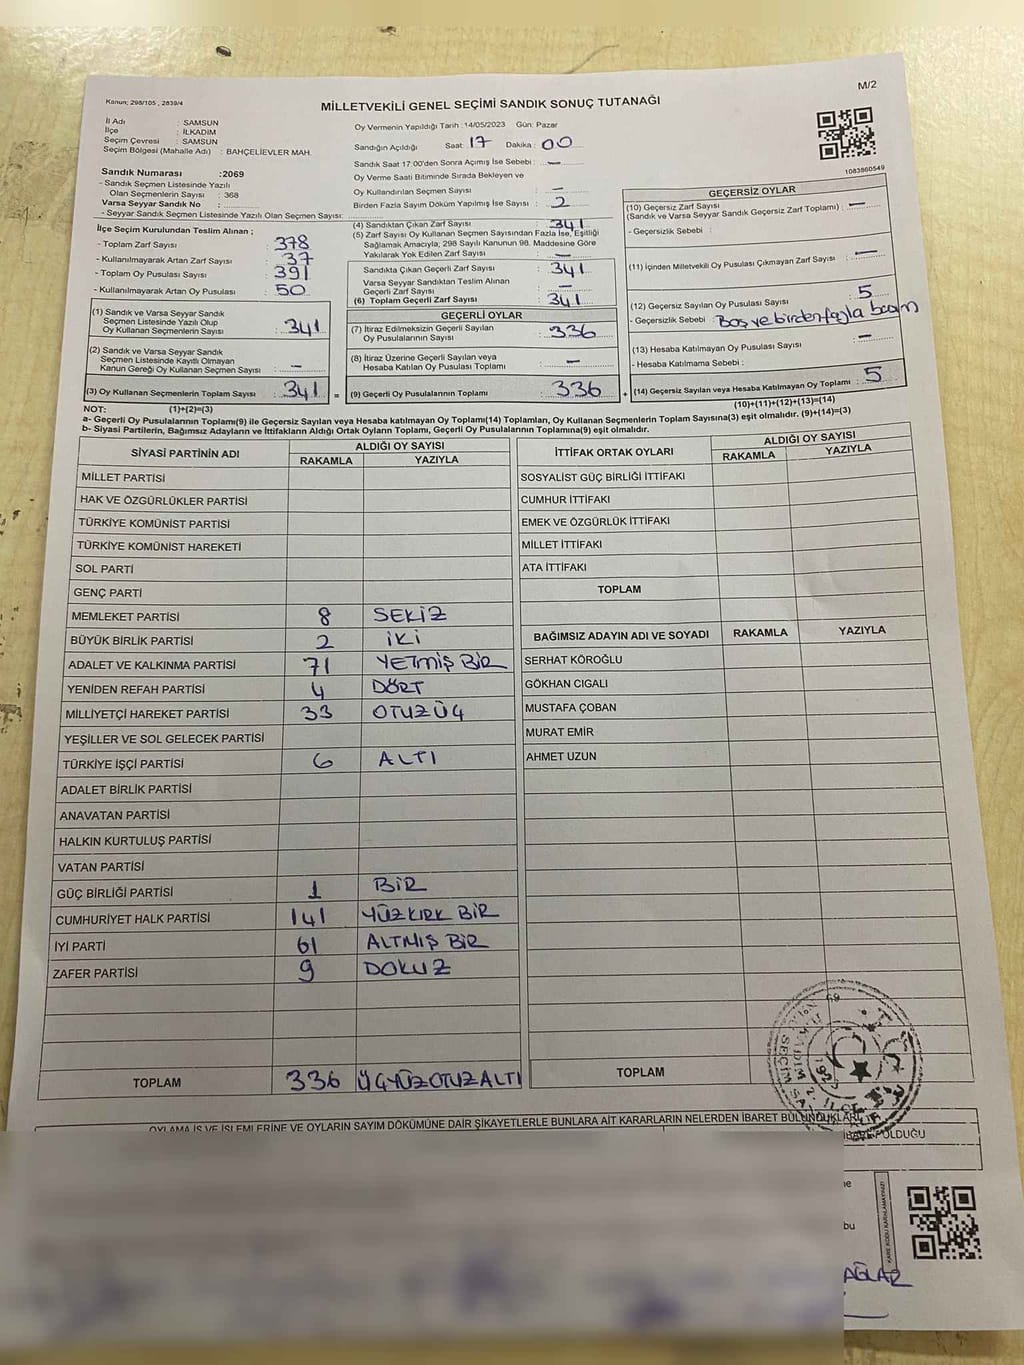 M/2
Kanun; 298/105 , 2839/4
MİLLETVEKİLİ GENEL SEÇİMİ SANDIK SONUÇ TUTANAĞI
İl Adı : SAMSUN
İlçe : İLKADIM
Seçim Çevresi : SAMSUN
Seçim Bölgesi (Mahalle Adı) : BAHÇELİEVLER MAH.
Sandık Numarası :2069
- Sandık Seçmen Listesinde Yazılı
Olan Seçmenlerin Sayısı : 368
Varsa Seyyar Sandık No :
- Seyyar Sandık Seçmen Listesinde Yazılı Olan Seçmen Sayısı:
Oy Vermenin Yapıldığı Tarih :14/05/2023 Gün: Pazar
Sandığın Açıldığı Saat: 17 Dakika: 00
Sandık Saat 17:00'den Sonra Açımış İse Sebebi : —
Oy Verme Saati Bitiminde Sırada Bekleyen ve
Oy Kullandırılan Seçmen Sayısı : —
Birden Fazla Sayım Döküm Yapılmış İse Sayısı : 2
1083860549
İlçe Seçim Kurulundan Teslim Alınan ;
- Toplam Zarf Sayısı : 378
- Kullanılmayarak Artan Zarf Sayısı : 37
- Toplam Oy Pusulası Sayısı : 391
- Kullanılmayarak Artan Oy Pusulası : 50
(1) Sandık ve Varsa Seyyar Sandık
Seçmen Listesinde Yazılı Olup
Oy Kullanan Seçmenlerin Sayısı : 341
(2) Sandık ve Varsa Seyyar Sandık
Seçmen Listesinde Kayıtlı Olmayan
Kanun Gereği Oy Kullanan Seçmen Sayısı : —
(3) Oy Kullanan Seçmenlerin Toplam Sayısı : 341 =
(4) Sandıktan Çıkan Zarf Sayısı : 341
(5) Zarf Sayısı Oy Kullanan Seçmen Sayısından Fazla İse, Eşitliği
Sağlamak Amacıyla, 298 Sayılı Kanunun 98. Maddesine Göre
Yakılarak Yok Edilen Zarf Sayısı : —
Sandıkta Çıkan Geçerli Zarf Sayısı : 341
Varsa Seyyar Sandıktan Teslim Alınan
Geçerli Zarf Sayısı : —
(6) Toplam Geçerli Zarf Sayısı : 341
GEÇERLİ OYLAR
(7) İtiraz Edilmeksizin Geçerli Sayılan
Oy Pusulalarının Sayısı : 336
(8) İtiraz Üzerine Geçerli Sayılan veya
Hesaba Katılan Oy Pusulası Toplamı : —
(9) Geçerli Oy Pusulalarının Toplamı : 336 +
GEÇERSİZ OYLAR
(10) Geçersiz Zarf Sayısı
(Sandık ve Varsa Seyyar Sandık Geçersiz Zarf Toplamı) : —
- Geçersizlik Sebebi :
(11) İçinden Milletvekili Oy Pusulası Çıkmayan Zarf Sayısı : —
(12) Geçersiz Sayılan Oy Pusulası Sayısı : 5
- Geçersizlik Sebebi : Boş ve birden fazla basım
(13) Hesaba Katılmayan Oy Pusulası Sayısı : —
- Hesaba Katılmama Sebebi :
(14) Geçersiz Sayılan veya Hesaba Katılmayan Oy Toplamı : 5
NOT: (1)+(2)=(3)
(10)+(11)+(12)+(13)=(14)
a- Geçerli Oy Pusulalarının Toplamı(9) ile Geçersiz Sayılan veya Hesaba katılmayan Oy Toplamı(14) Toplamları, Oy Kullanan Seçmenlerin Toplam Sayısına(3) eşit olmalıdır. (9)+(14)=(3)
b- Siyasi Partilerin, Bağımsız Adayların ve İttifakların Aldığı Ortak Oyların Toplamı, Geçerli Oy Pusulalarının Toplamına(9) eşit olmalıdır.
SİYASİ PARTİNİN ADI ALDIĞI OY SAYISI
RAKAMLA YAZIYLA
MİLLET PARTİSİ
HAK VE ÖZGÜRLÜKLER PARTİSİ
TÜRKİYE KOMÜNİST PARTİSİ
TÜRKİYE KOMÜNİST HAREKETİ
SOL PARTİ
GENÇ PARTİ
MEMLEKET PARTİSİ 8 SEKİZ
BÜYÜK BİRLİK PARTİSİ 2 İKİ
ADALET VE KALKINMA PARTİSİ 71 YETMİŞ BİR
YENİDEN REFAH PARTİSİ 4 DÖRT
MİLLİYETÇİ HAREKET PARTİSİ 33 OTUZÜÇ
YEŞİLLER VE SOL GELECEK PARTİSİ
TÜRKİYE İŞÇİ PARTİSİ 6 ALTI
ADALET BİRLİK PARTİSİ
ANAVATAN PARTİSİ
HALKIN KURTULUŞ PARTİSİ
VATAN PARTİSİ
GÜÇ BİRLİĞİ PARTİSİ 1 BİR
CUMHURİYET HALK PARTİSİ 141 YÜZKIRK BİR
İYİ PARTİ 61 ALTMIŞ BİR
ZAFER PARTİSİ 9 DOKUZ
TOPLAM 336 ÜÇYÜZOTUZALTI
İTTİFAK ORTAK OYLARI ALDIĞI OY SAYISI
RAKAMLA YAZIYLA
SOSYALİST GÜÇ BİRLİĞİ İTTİFAKI
CUMHUR İTTİFAKI
EMEK VE ÖZGÜRLÜK İTTİFAKI
MİLLET İTTİFAKI
ATA İTTİFAKI
TOPLAM
BAĞIMSIZ ADAYIN ADI VE SOYADI RAKAMLA YAZIYLA
SERHAT KÖROĞLU
GÖKHAN CIGALI
MUSTAFA ÇOBAN
MURAT EMİR
AHMET UZUN
TOPLAM
OYLAMA İŞ VE İŞLEMLERİNE VE OYLARIN SAYIM DÖKÜMÜNE DAİR ŞİKAYETLERLE BUNLARA AİT KARARLARIN NELERDEN İBARET BULUNDUKLARI